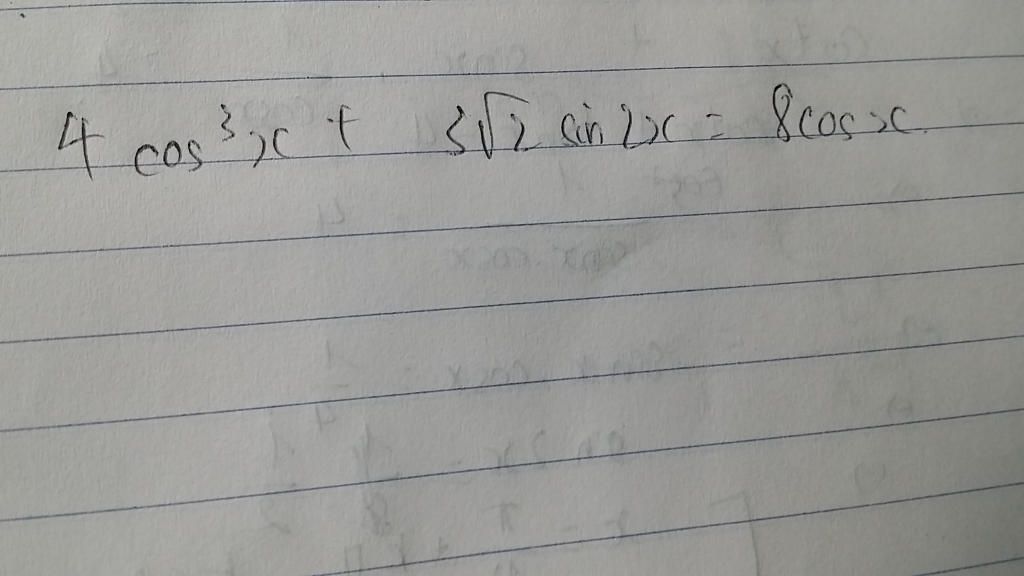 4 cos³x + 3√2 sin 2x = 8cosx